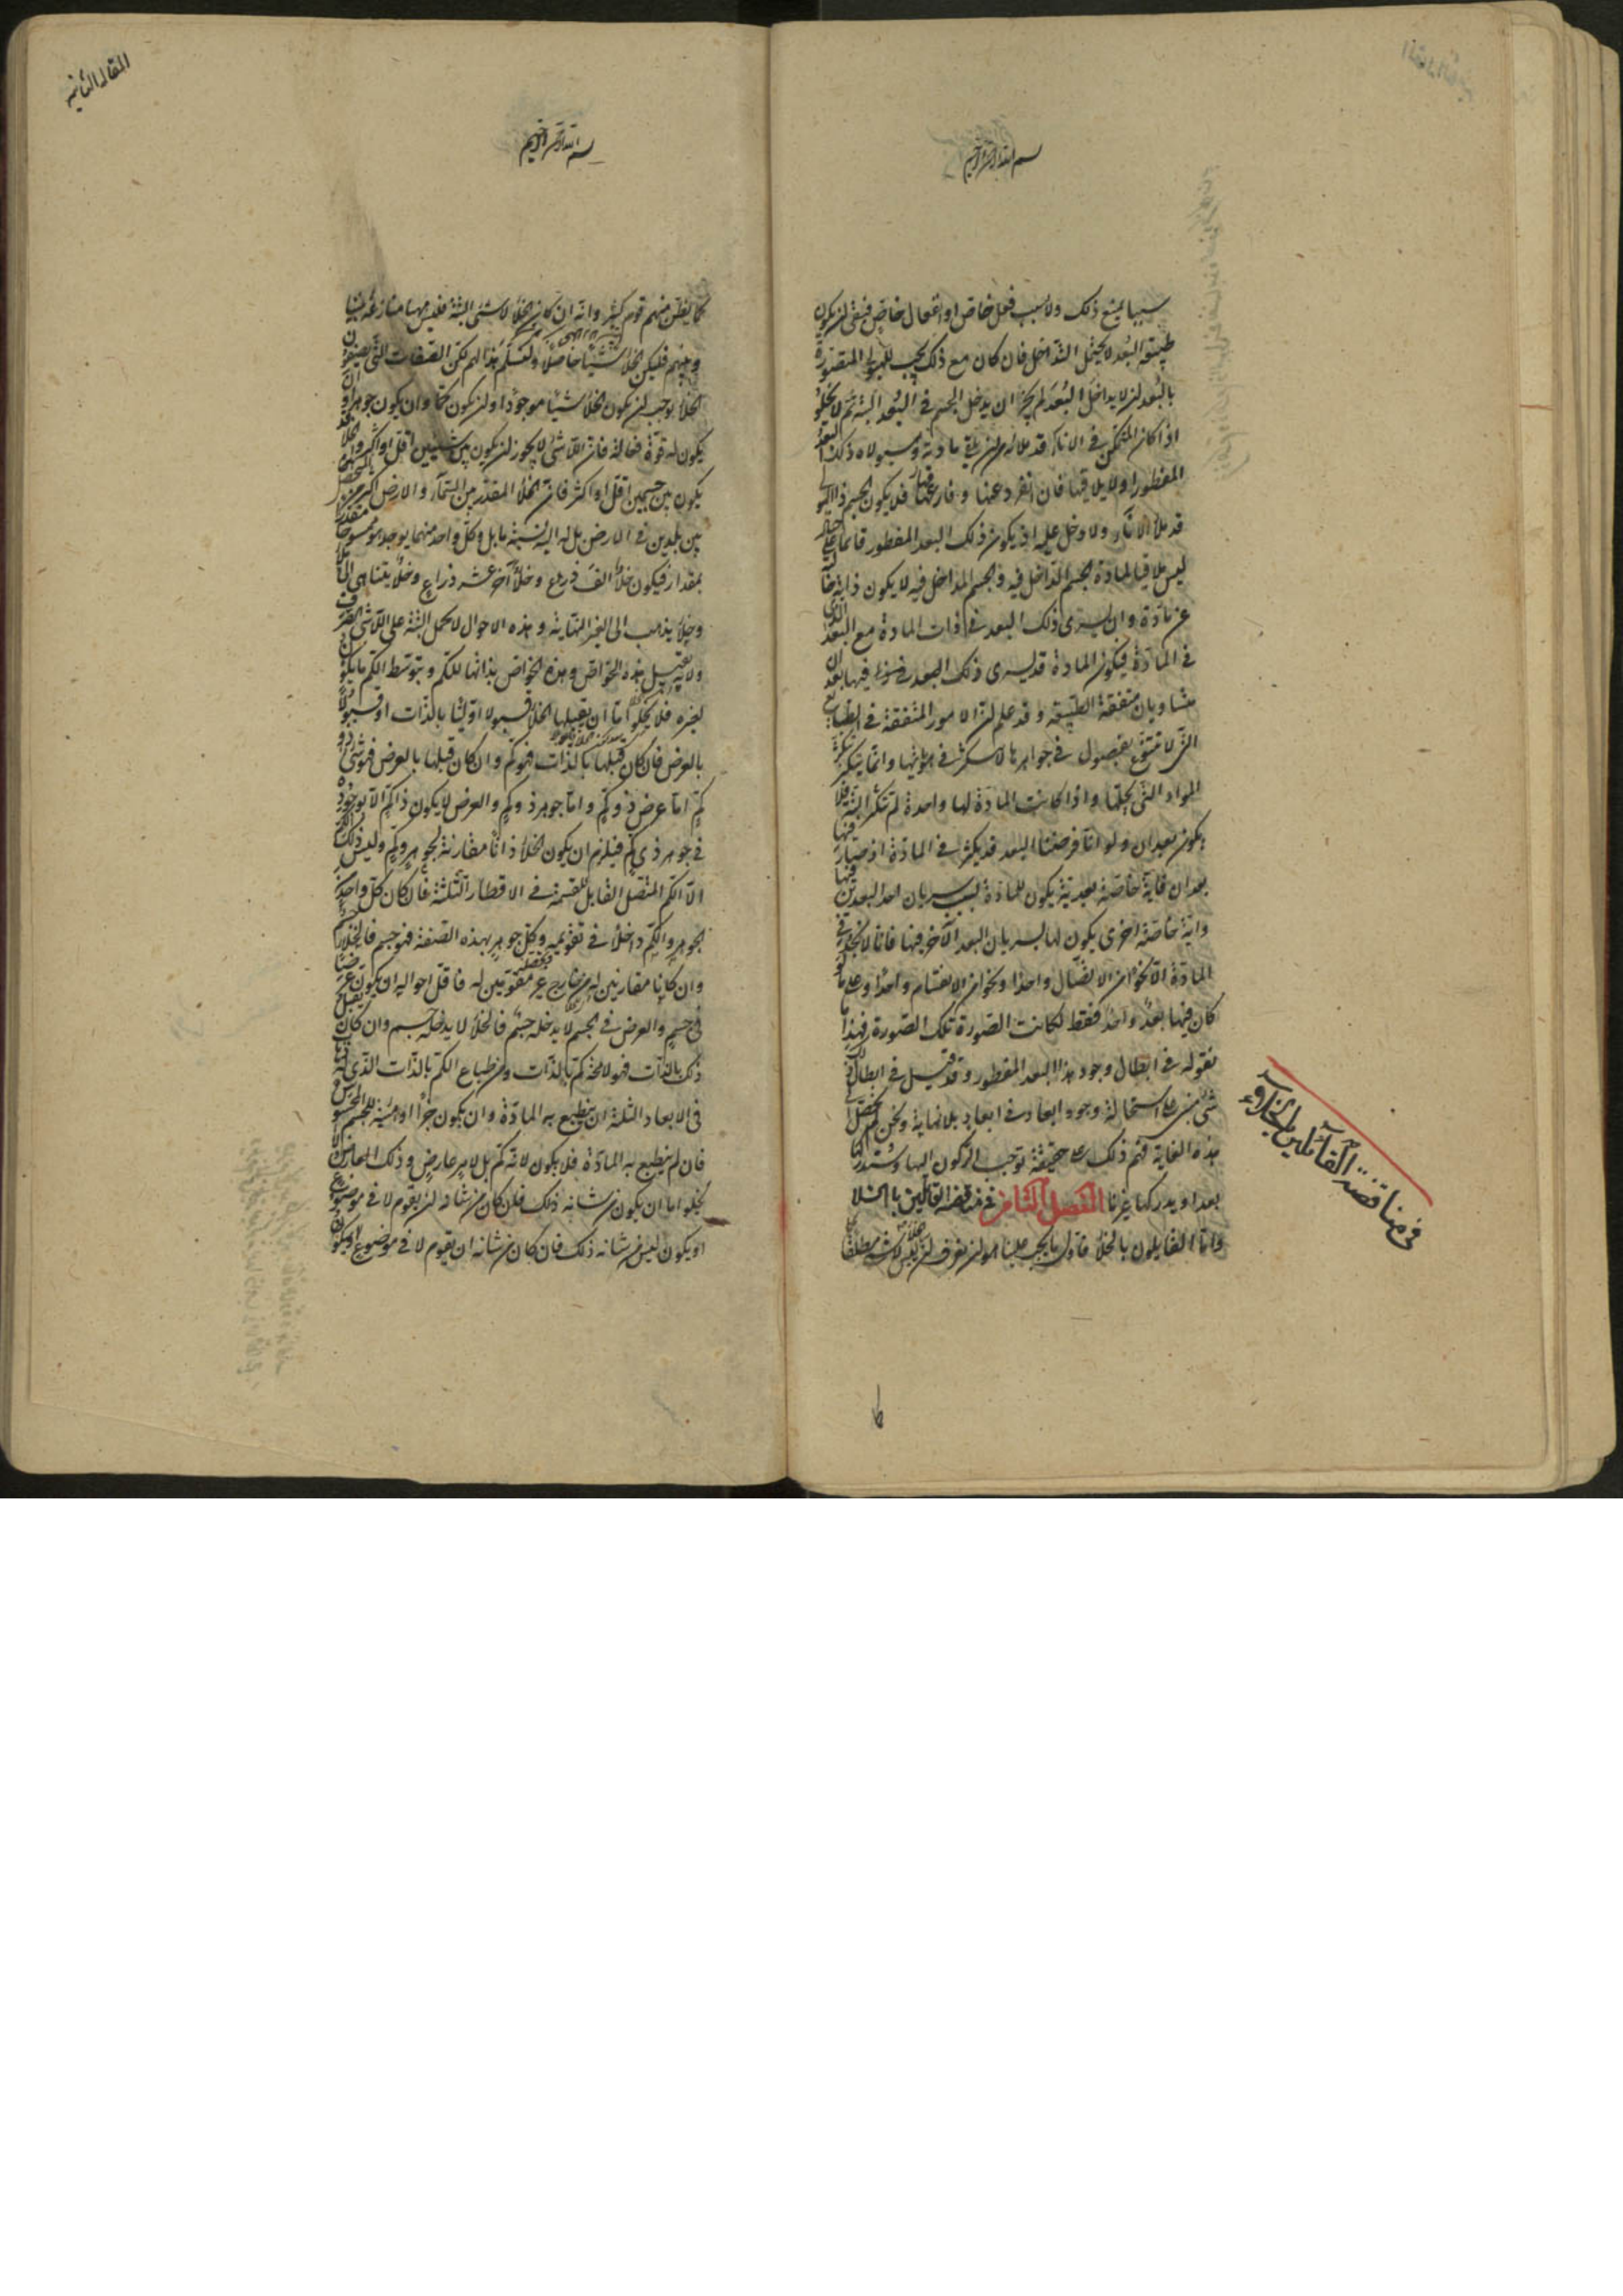 بسم الله الرحمن الرحيم
سببا يمنع ذلك ولا سبب فعل خاص او انفعال خاص فبقى ان يكون
طبيعة البعد لا يحتمل التداخل فان كان مع ذلك يجب للهيولى المتصورة
بالبعد ان لا يداخل البعد لم يجز ان يدخل الجسم في البعد البتة ثم لا يخلو
اذا كان المتمكن في الاناء قد ملاه من ان يلقى مادته وهيولاه ذلك البعد
المفطور او لا يلاقيها فان انفرد عنها وفارقها فلا يكون الجسم ذا الهيولى
قد ملأ الاناء ولا دخل عليه اذ يكون ذلك البعد المفطور قائما على حياله
ليس ملاقيا لمادة الجسم الداخل فيه والجسم الداخل فيه لا يكون ذاته خالية
عن مادة وان سرى ذلك البعد في ذات المادة مع البعد الذي
في المادة فيكون المادة قد يسرى ذلك البعد فيها بعدان
متساويان متفقة الطبيعة وقد علم ان الامور المتفقة في الطباع
التي لا تتنوع بفصول في جواهرها لا تتكثر في هوياتها وانما يتكثر بتكثر
المواد التي تحملها واذا كانت المادة لها واحدة لم تتكثر البتة فلا
يكون بعدان ولو انا فرضنا البعد قد تكثر في المادة اذ صار فيها
بعدان فاية خاصة بعدية يكون للمادة بسبب سريان احد البعدين فيها
واية خاصة اخرى يكون لها بسريان البعد الآخر فيها فانا لا نجد في
المادة الا نحوا من الاتصال واحدا ونحوا من الانقسام واحدا وعلى ما لو
كان فيها بعد واحد فقط لكانت الصورة تلك الصورة فهذا ما
نقوله في ابطال وجود هذا البعد المفطور وقد قيل في ابطال ذلك
شئ مبنى على استحالة وجود ابعاد في ابعاد بلا نهاية ونحن لم نحصل الى
هذه الغاية فهم ذلك على حقيقة توجب الركون اليها وسندركها
بعد او يدركها غيرنا الفصل الثامن في مناقضة القائلين بالخلا
واما القائلون بالخلأ فاول ما يجب علينا هو ان نعرف ان الخلأ ليس لا شئ مطلقا
في مناقضة القائلين بالخلاء
المقاله الثانيه
بسم الله الرحمن الرحيم
كما يظن منهم قوم كثير وانه ان كان الخلأ لا شئ البتة فليس ههنا منازعة بيننا
وبينهم فليكن الخلأ شيئا حاصلا ولنسلم هذا لهم لكن الصفات التي يصفون
الخلأ توجب ان يكون الخلأ شيئا موجودا وان يكون كما وان يكون جوهرا وان
يكون له قوة فعالة فان اللاشئ لا يجوز ان يكون بين شيئين اقل او اكثر والخلا قد
يكون بين جسمين اقل او اكثر فان الخلأ المقدر بين السماء والارض اكثر من المتحصل
بين بلدين في الارض بل له اليه نسبة ما بل وكل واحد منهما يوجد ممسوحا مقدرا
بمقدار فيكون خلأ الف ذراع وخلأ آخر عشرة ذراع وخلأ يتناهى الى ملاء
وخلأ يذهب الى الغير النهاية وهذه الاحوال لا تحمل البتة على اللاشئ الصرف
ولانه يقبل هذه الخواص وهذه الخواص بذاتها للكم وبتوسط الكم ما يكون
لغيره فلا يخلو اما ان يقبلها الخلأ قبولا اوليا بالذات او قبولا
بالعرض فان كان قبلها بالذات فهو كم وان كان قبلها بالعرض فهو شئ ذو
كم اما عرض ذو كم واما جوهر ذو كم والعرض لا يكون ذا كم الا لوجوده
في جوهر ذي كم فيلزم ان يكون الخلأ ذاتا مقارنة لجوهر وكم وليس ذلك الكم
الا الكم المتصل القابل للقسمة في الاقطار الثلثة فان كان كل واحد من
الجوهر والكم داخلا في تقويمه وكل جوهر بهذه الصفة فهو جسم فالخلأ جسم
وان كانا مقارنين له من خارج غير مقومين له فاقل احواله ان يكون عرضا
في جسم والعرض في الجسم لا يدخله جسم فالخلأ لا يدخله جسم وان كان يقبل
ذلك بالذات فهو لا محة كم بالذات ومن طباع الكم بالذات الذي له ذهاب
في الابعاد الثلثة ان ينطبع به المادة وان يكون جزأ او هيئة للجسم المحسوس
فان لم ينطبع به المادة فلا يكون لانه كم بل لامر عارض وذلك العارض لا
يخلو اما ان يكون من شانه ذلك فان كان من شانه ان يقوم لا في موضوع
او يكون ليس من شانه ذلك فان كان من شانه ان يقوم لا في موضوع او يكون